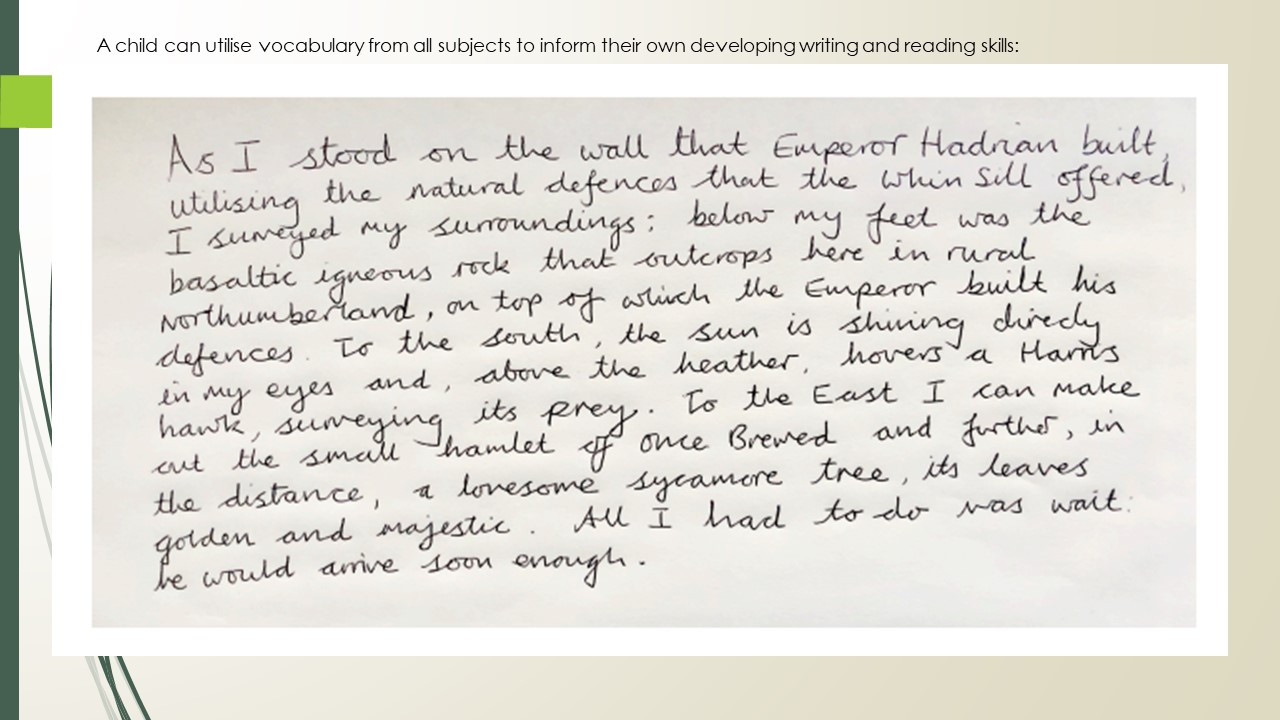 A child can utilise vocabulary from all subjects to inform their own developing writing and reading skills:
As I stood on the wall that Emperor Hadrian built,
utilising the natural defences that the Whin Sill offered,
I surveyed my surroundings; below my feet was the
basaltic igneous rock that outcrops here in rural
Northumberland, on top of which the Emperor built his
defences. To the south, the sun is shining direcly
in my eyes and, above the heather, hovers a Harris
hawk, surveying its prey. To the East I can make
out the small hamlet of once Brewed and further, in
the distance, a lonesome sycamore tree, its leaves
golden and majestic. All I had to do was wait:
he would arrive soon enough.